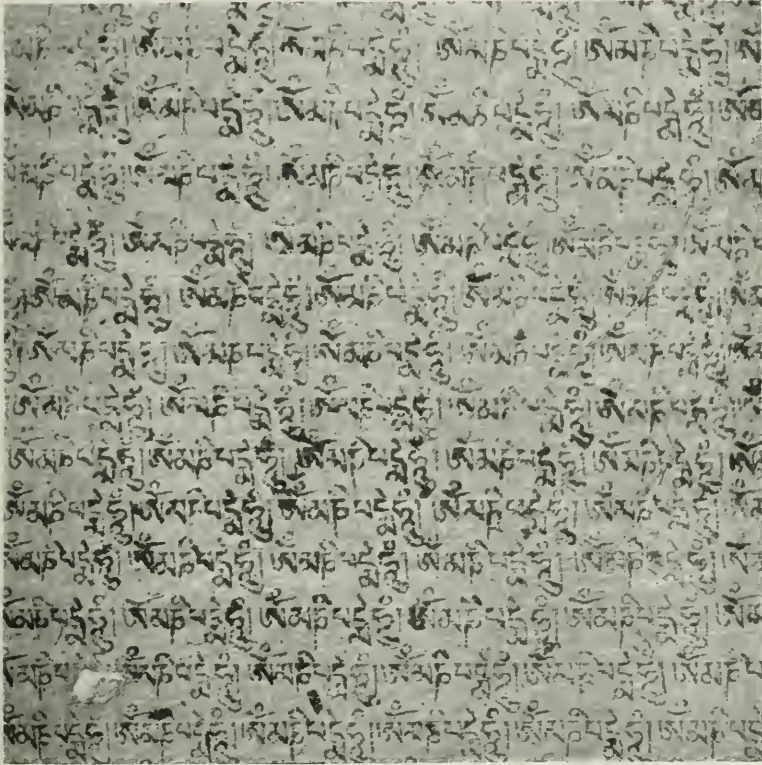 མཎིཔདྨེཧཱུྃ། ཨོཾམཎིཔདྨེཧཱུྃ། ཨོཾམཎིཔདྨེཧཱུྃ། ཨོཾམཎིཔདྨེཧཱུྃ། ཨོཾམཎིཔདྨེཧཱུྃ། ཨོཾ
མཎིཔདྨེཧཱུྃ། ཨོཾམཎིཔདྨེཧཱུྃ། ཨོཾམཎིཔདྨེཧཱུྃ། ཨོཾམཎིཔདྨེཧཱུྃ། ཨོཾམཎིཔདྨེཧཱུྃ། ཨོཾམ
མཎིཔདྨེཧཱུྃ། ཨོཾམཎིཔདྨེཧཱུྃ། ཨོཾམཎིཔདྨེཧཱུྃ། ཨོཾམཎིཔདྨེཧཱུྃ། ཨོཾམཎིཔདྨེཧཱུྃ། ཨོཾམ
མཎིཔདྨེཧཱུྃ། ཨོཾམཎིཔདྨེཧཱུྃ། ཨོཾམཎིཔདྨེཧཱུྃ། ཨོཾམཎིཔདྨེཧཱུྃ། ཨོཾམཎིཔདྨེཧཱུྃ། ཨོཾམཎིཔ
། ཨོཾམཎིཔདྨེཧཱུྃ། ཨོཾམཎིཔདྨེཧཱུྃ། ཨོཾམཎིཔདྨེཧཱུྃ། ཨོཾམཎིཔདྨེཧཱུྃ། ཨོཾམཎིཔདྨེཧཱུྃ། ཨོཾམ
། ཨོཾམཎིཔདྨེཧཱུྃ། ཨོཾམཎིཔདྨེཧཱུྃ། ཨོཾམཎིཔདྨེཧཱུྃ། ཨོཾམཎིཔདྨེཧཱུྃ། ཨོཾམཎིཔདྨེཧཱུྃ། ཨོཾམ
ཨོཾམཎིཔདྨེཧཱུྃ། ཨོཾམཎིཔདྨེཧཱུྃ། ཨོཾམཎིཔདྨེཧཱུྃ། ཨོཾམཎིཔདྨེཧཱུྃ། ཨོཾམཎིཔདྨེཧཱུྃ།
ཨོཾམཎིཔདྨེཧཱུྃ། ཨོཾམཎིཔདྨེཧཱུྃ། ཨོཾམཎིཔདྨེཧཱུྃ། ཨོཾམཎིཔདྨེཧཱུྃ། ཨོཾམཎིཔདྨེཧཱུྃ། ཨོཾ
ཨོཾམཎིཔདྨེཧཱུྃ། ཨོཾམཎིཔདྨེཧཱུྃ། ཨོཾམཎིཔདྨེཧཱུྃ། ཨོཾམཎིཔདྨེཧཱུྃ། ཨོཾམཎིཔདྨེཧཱུྃ། ཨོཾམ
ཨོཾམཎིཔདྨེཧཱུྃ། ཨོཾམཎིཔདྨེཧཱུྃ། ཨོཾམཎིཔདྨེཧཱུྃ། ཨོཾམཎིཔདྨེཧཱུྃ། ཨོཾམཎིཔདྨེཧཱུྃ། ཨོཾམ
ཨོཾམཎིཔདྨེཧཱུྃ། ཨོཾམཎིཔདྨེཧཱུྃ། ཨོཾམཎིཔདྨེཧཱུྃ། ཨོཾམཎིཔདྨེཧཱུྃ། ཨོཾམཎིཔདྨེཧཱུྃ། ཨོཾམ
ཨོཾམཎིཔ ཨོཾམཎིཔདྨེཧཱུྃ། ཨོཾམཎིཔདྨེཧཱུྃ། ཨོཾམཎིཔདྨེཧཱུྃ། ཨོཾམཎིཔདྨེཧཱུྃ། ཨོཾམཎིཔ
ཨོཾམཎིཔདྨེཧཱུྃ། ཨོཾམཎིཔདྨེཧཱུྃ། ཨོཾམཎིཔདྨེཧཱུྃ། ཨོཾམཎིཔདྨེཧཱུྃ། ཨོཾམཎིཔདྨེཧཱུྃ། ཨོཾམཎིཔདྨེཧཱུྃ།